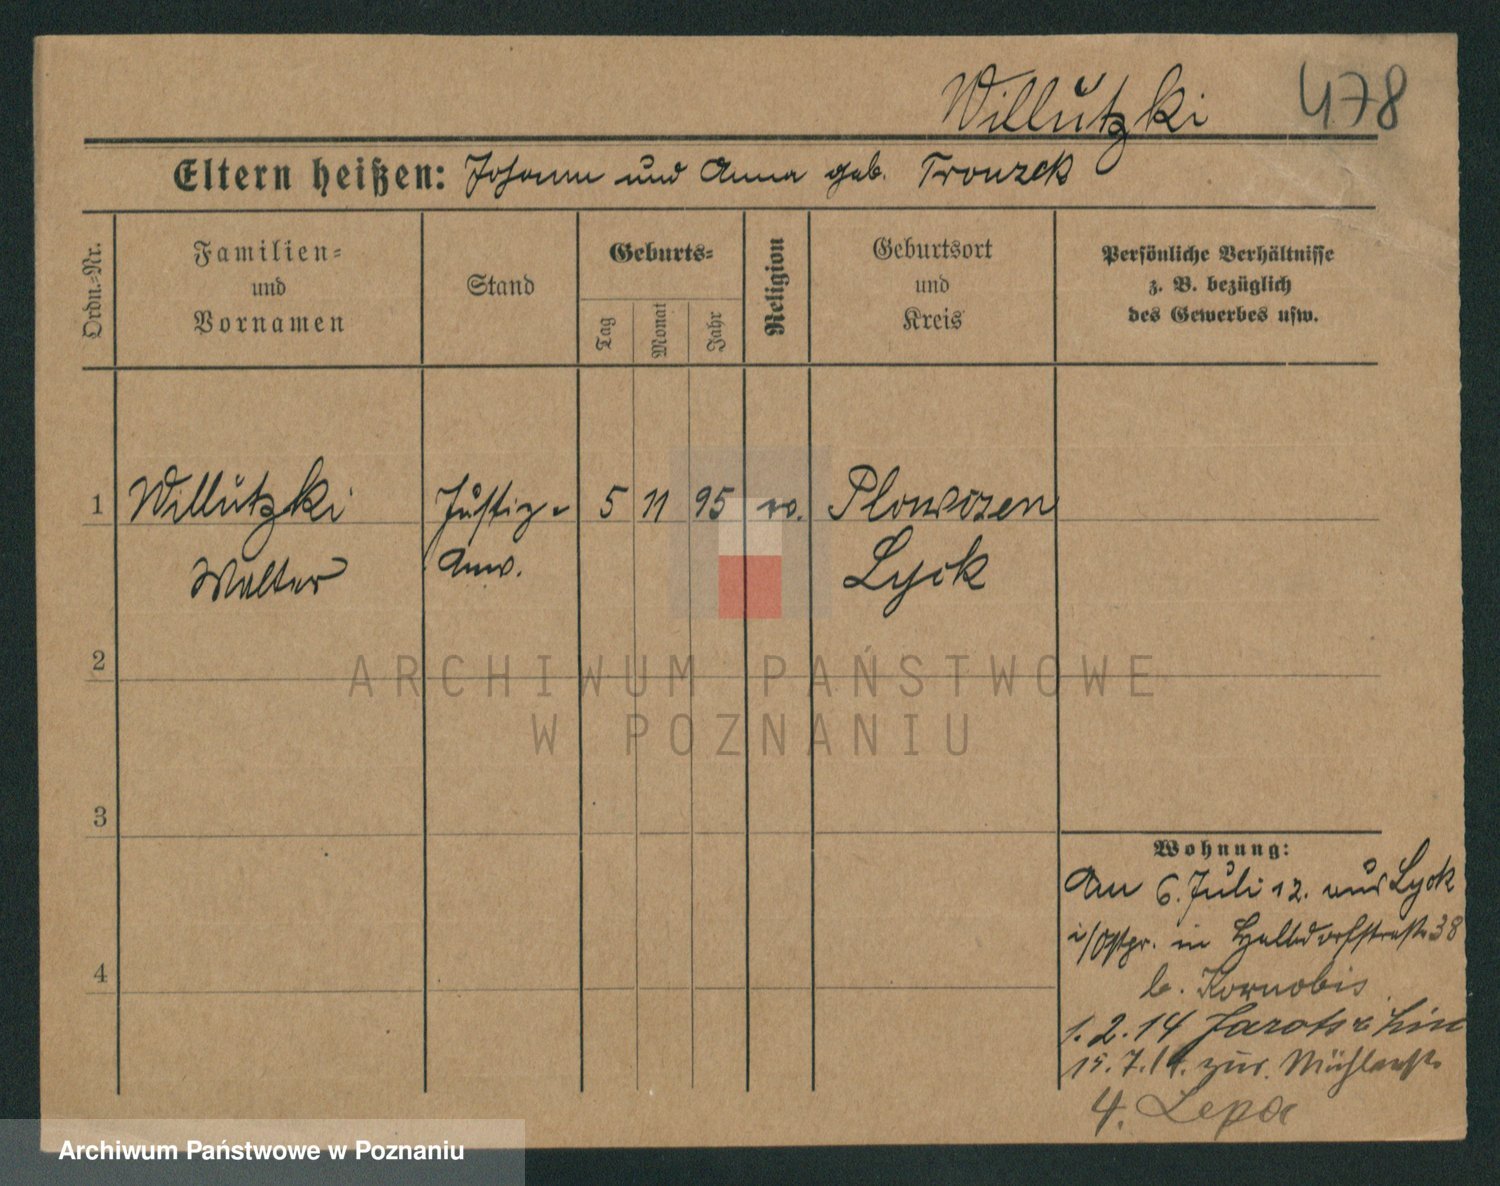 Willutzki 478
Eltern heißen: Johann und Anna geb. Tronzek
Ordn.=Nr.
Familien=
und
Vornamen
Stand
Geburts=
Tag
Monat
Jahr
Religion
Geburtsort
und
Kreis
Persönliche Verhältnisse
z. B. bezüglich
des Gewerbes usw.
1 Willutzki Justiz- 5 11 95 Plowczen
Walter Anw. Lyck
2
3
4
Wohnung:
Am 6. Juli 12. aus Lyck
i/Ostpr. in Halbdorfstraße 38
b. Kornobis
1.2.14 Jarotschin
15.7.14. zur. Mühlenstr.
4. Lepa
ARCHIWUM PAŃSTWOWE
W POZNANIU
Archiwum Państwowe w Poznaniu